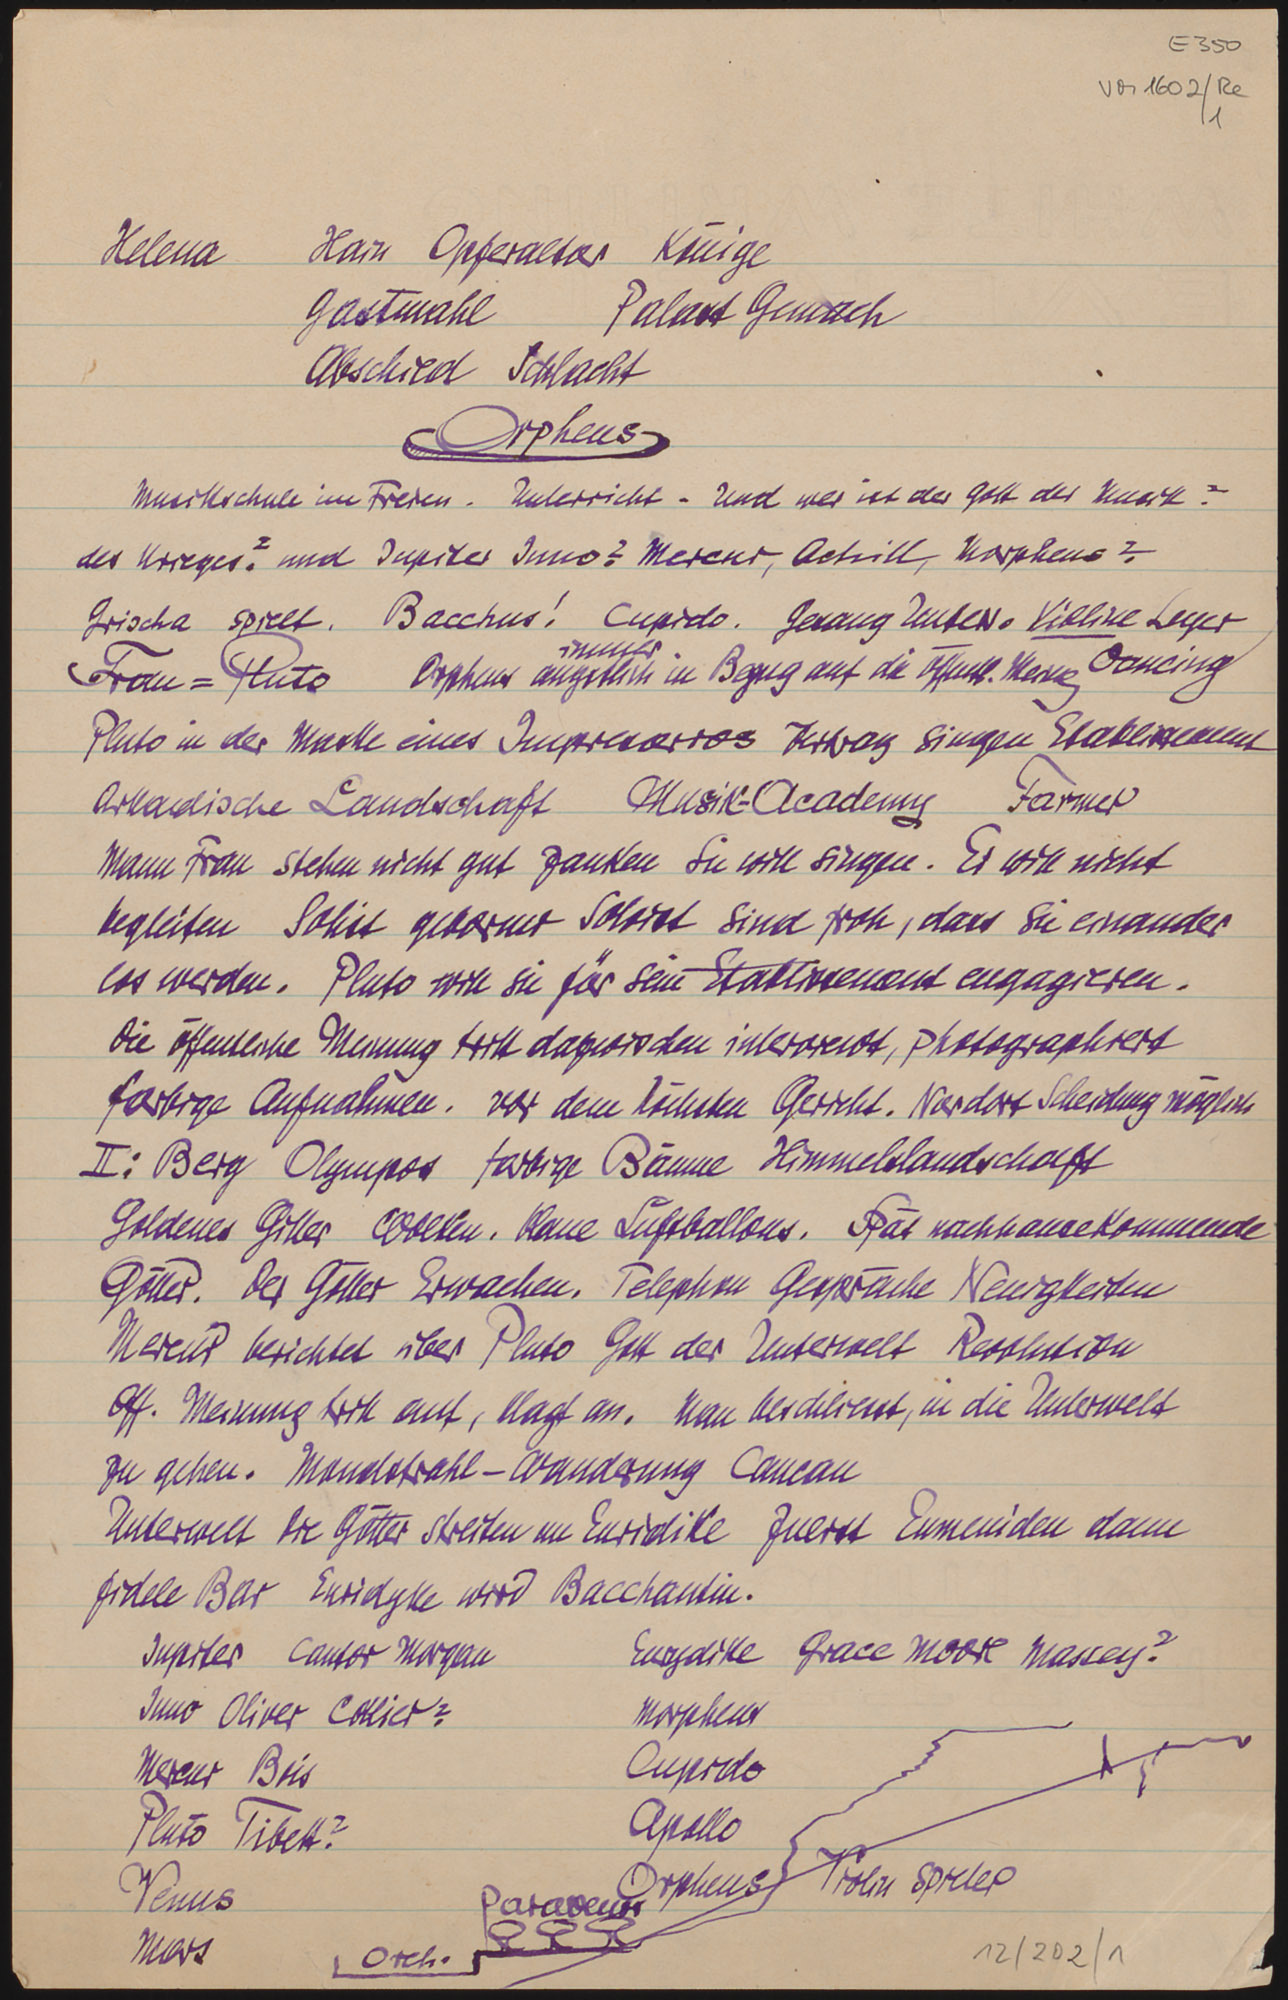 E 350
Vor 1602/Re
1
Helena Hain Opferaltar Könige
Gastmahl Palast Gemach
Abschied Schlacht
Orpheus
Musikschule im Freien. Unterricht - Und wer ist der Gott der Musik?
des Krieges? und Jupiter Juno? Mercur, Achill, Morpheus?
Grischa spielt. Bacchus! Cupido. Gesang Unterr. Violine Leyer
Frau = Pluto Orpheus immer ängstlich in Bezug auf die öffentl. Meing Dancing
Pluto in der Maske eines Impresarios Vertrag singen Etablissement
Arkadische Landschaft Musik-Academy Farmer
Mann Frau stehen nicht gut zanken Sie will singen. Er will nicht
begleiten Solist geborner Solist sind froh, dass sie einander
los werden. Pluto will sie für sein Etablissement engagieren.
Die öffentliche Meinung tritt dazwischen interviewt, photographiert
farbige Aufnahmen. vor dem höchsten Gericht. Nur dort Scheidung möglich
II: Berg Olympos farbige Bäume Himmelslandschaft
Goldenes Gitter Wolken. blaue Luftballons. Spät nachhausekommende
Götter. Der Götter Erwachen. Telephon Gespräche Neuigkeiten
Mercur berichtet über Pluto Gott der Unterwelt Revolution
Öff. Meinung tritt auf, klagt an. Man beschliesst, in die Unterwelt
zu gehen. Mondstrahl - Wanderung Cancan
Unterwelt Die Götter streiten um Euridike Zuerst Eumeniden dann
fidele Bar Euridyke wird Bacchantin.
Jupiter Cantor Morgan Eurydike Grace Moore Massey?
Juno Oliver Collier? Morpheus
Mercur Bois Cupido
Pluto Tibett? Apollo
Venus Orpheus Violin spieler
Paravents
Mars Orch.
12/202/1